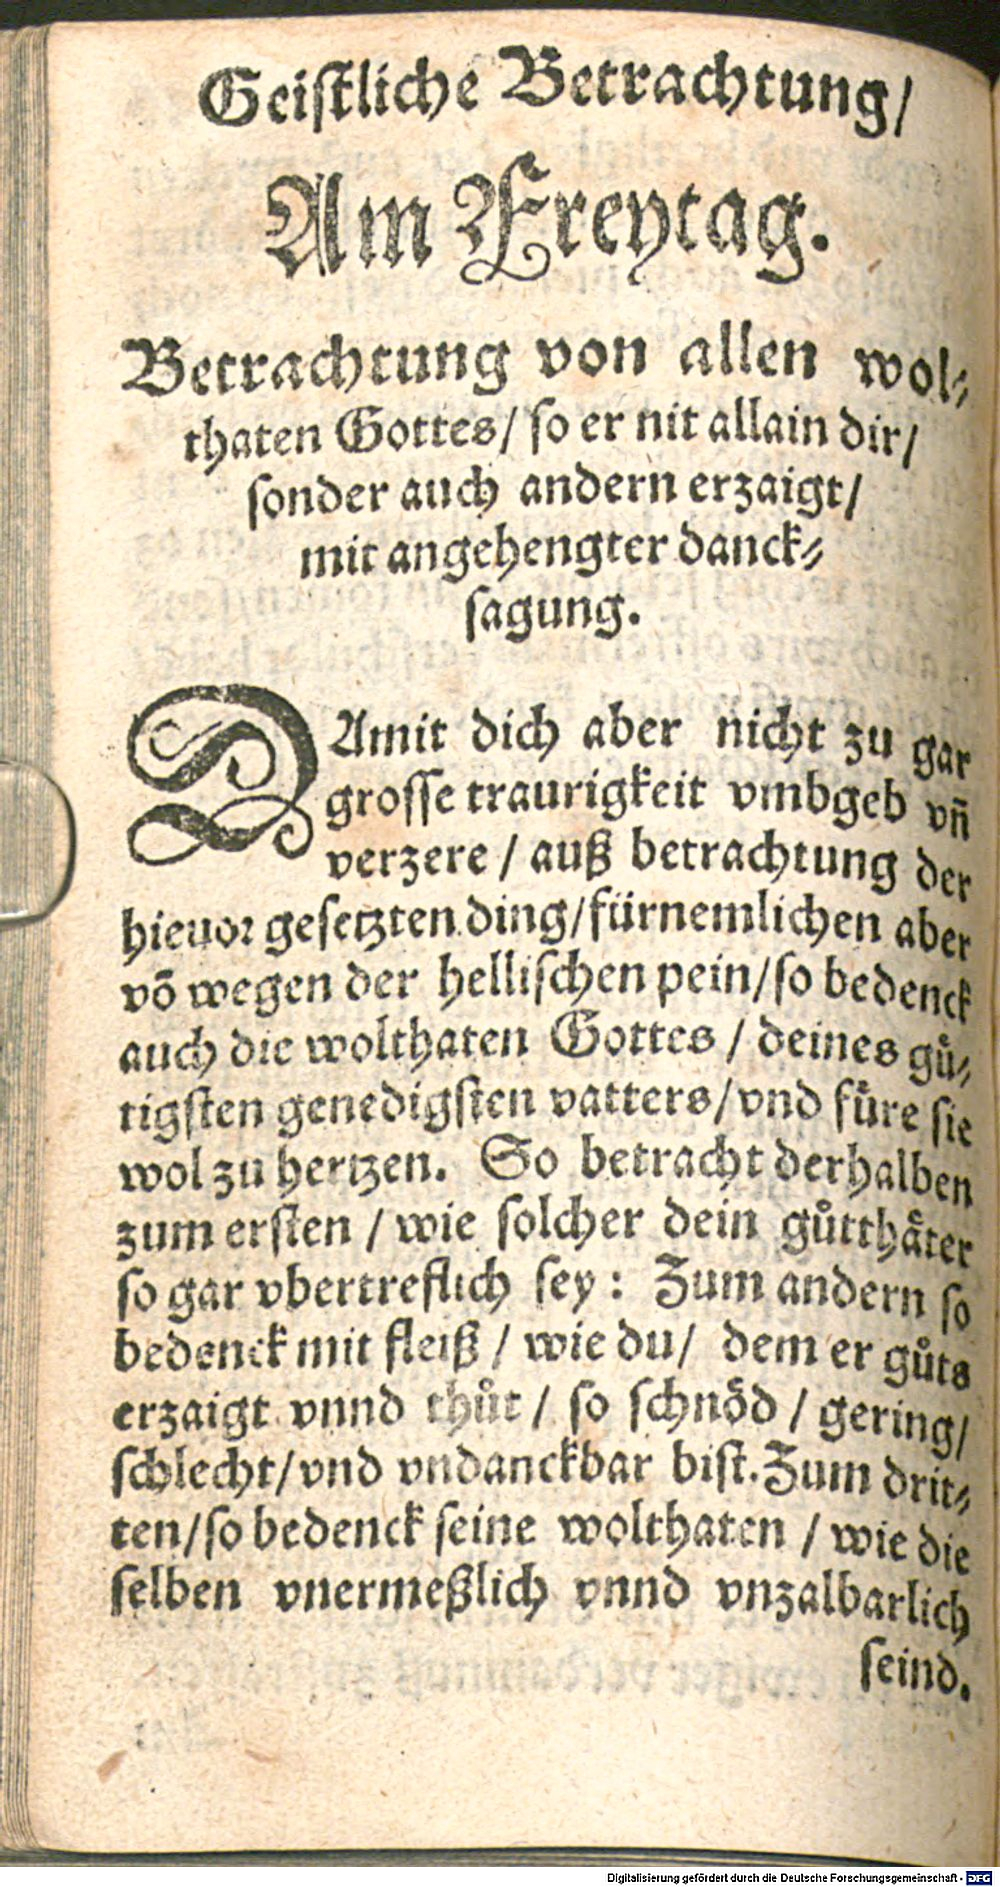 Geistliche Betrachtung/
Am Freytag.
Betrachtung von allen wol⸗
thaten Gottes/ so er nit allain dir/
sonder auch andern erzaigt/
mit angehengter danck⸗
sagung.
DAmit dich aber nicht zu gar
grosse traurigkeit vmbgeb vn̄
verzere / auß betrachtung der
hieuor gesetzten ding/fürnemlichen aber
vō wegen der hellischen pein/so bedenck
auch die wolthaten Gottes / deines guͤ⸗
tigsten genedigsten vatters/vnd fuͤre sie
wol zu hertzen. So betracht derhalben
zum ersten / wie solcher dein guͦtthaͤter
so gar vbertreflich sey : Zum andern so
bedenck mit fleiß / wie du/ dem er guͦts
erzaigt vnnd thuͦt / so schnoͤd / gering/
schlecht/vnd vndanckbar bist. Zum drit⸗
ten/so bedenck seine wolthaten / wie die
selben vnermeßlich vnnd vnzalbarlich
seind.
Digitalisierung gefördert durch die Deutsche Forschungsgemeinschaft - DFG